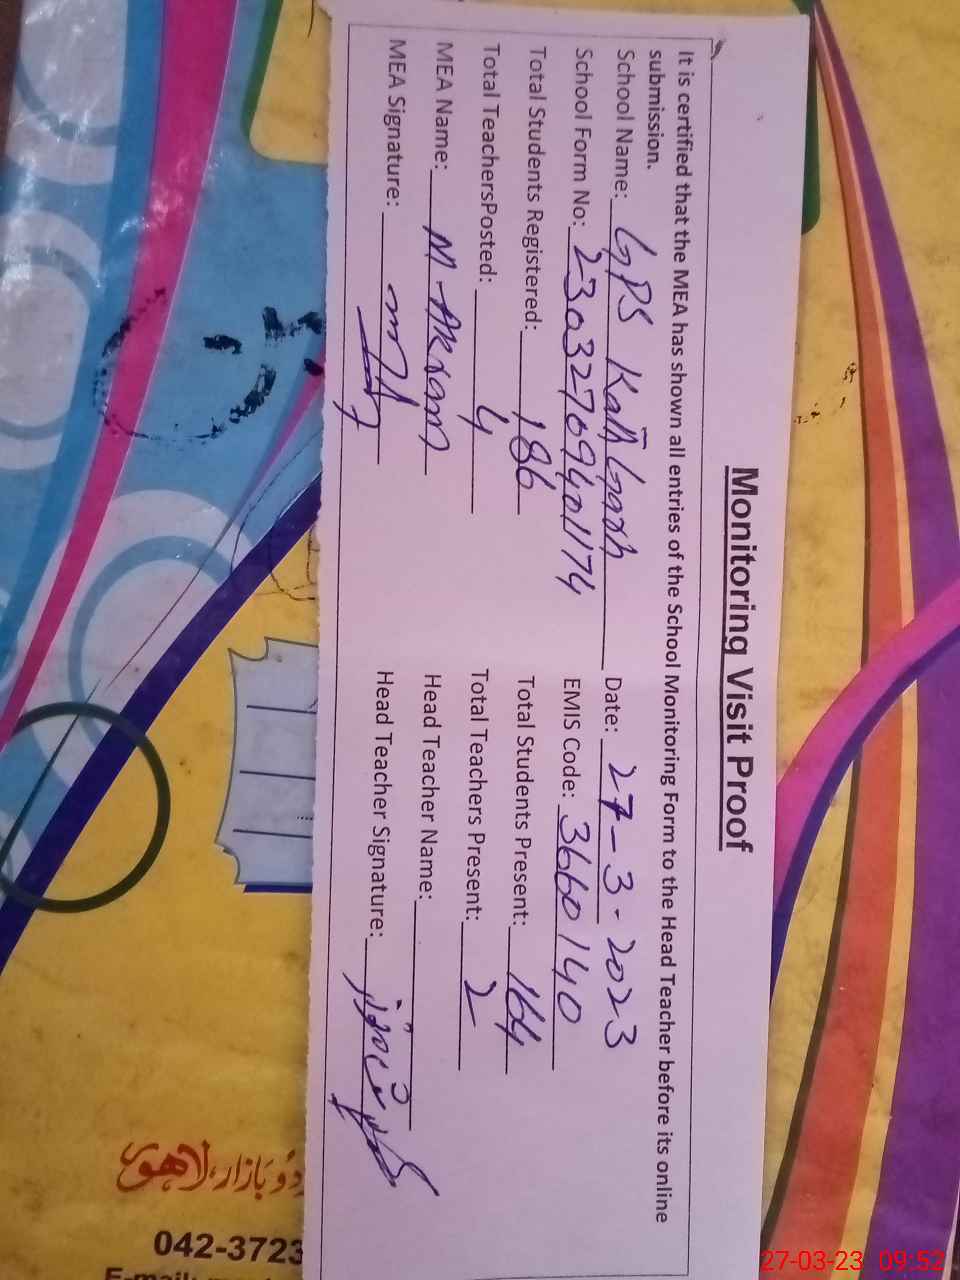 Monitoring Visit Proof
It is certified that the MEA has shown all entries of the School Monitoring Form to the Head Teacher before its online
submission.
School Name: GPS Garh Date: 27-3-2023
School Form No: 23032769401174 EMIS Code: 3660140
Total Students Registered: 186 Total Students Present: 164
Total TeachersPosted: 4 Total Teachers Present: 2
MEA Name: M AKram Head Teacher Name:
MEA Signature: Head Teacher Signature:
بازار، لاهور
042-3723
E-mail:
27-03-23 09:52